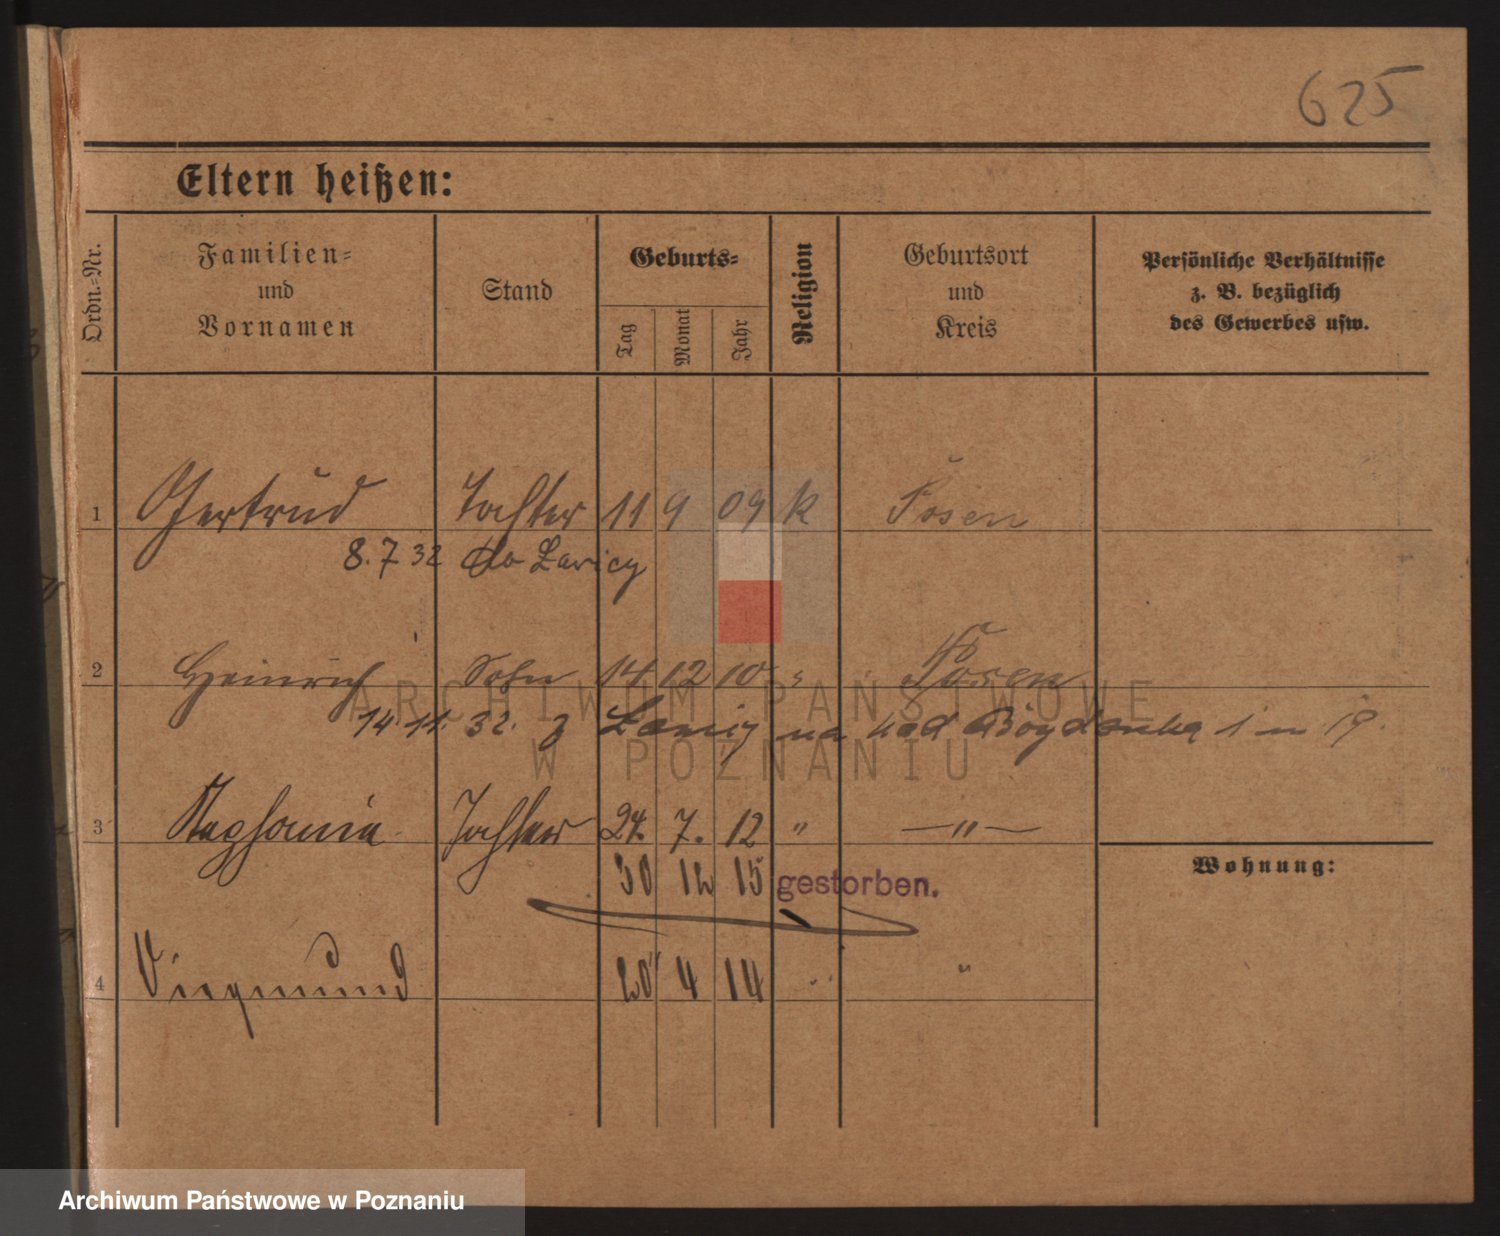 625
Eltern heißen:
Ordn.-Nr.
Familien-
und
Vornamen
Stand
Geburts-
Tag
Monat
Jahr
Religion
Geburtsort
und
Kreis
Persönliche Verhältnisse
z. B. bezüglich
des Gewerbes usw.
1 Gertrud Tochter 11 9 09 k Posen
8.7 32 do Lavicy
2 Heinrich Sohn 14 12 10 " Posen
14.11. 32. z Lawicy na nad Bogdanką 1 m 19.
3 Stephania Tochter 24. 7. 12 " — " —
30 12 15 gestorben.
Wohnung:
4 20 4 14 " "
ARCHIWUM PAŃSTWOWE
W POZNANIU
Archiwum Państwowe w Poznaniu